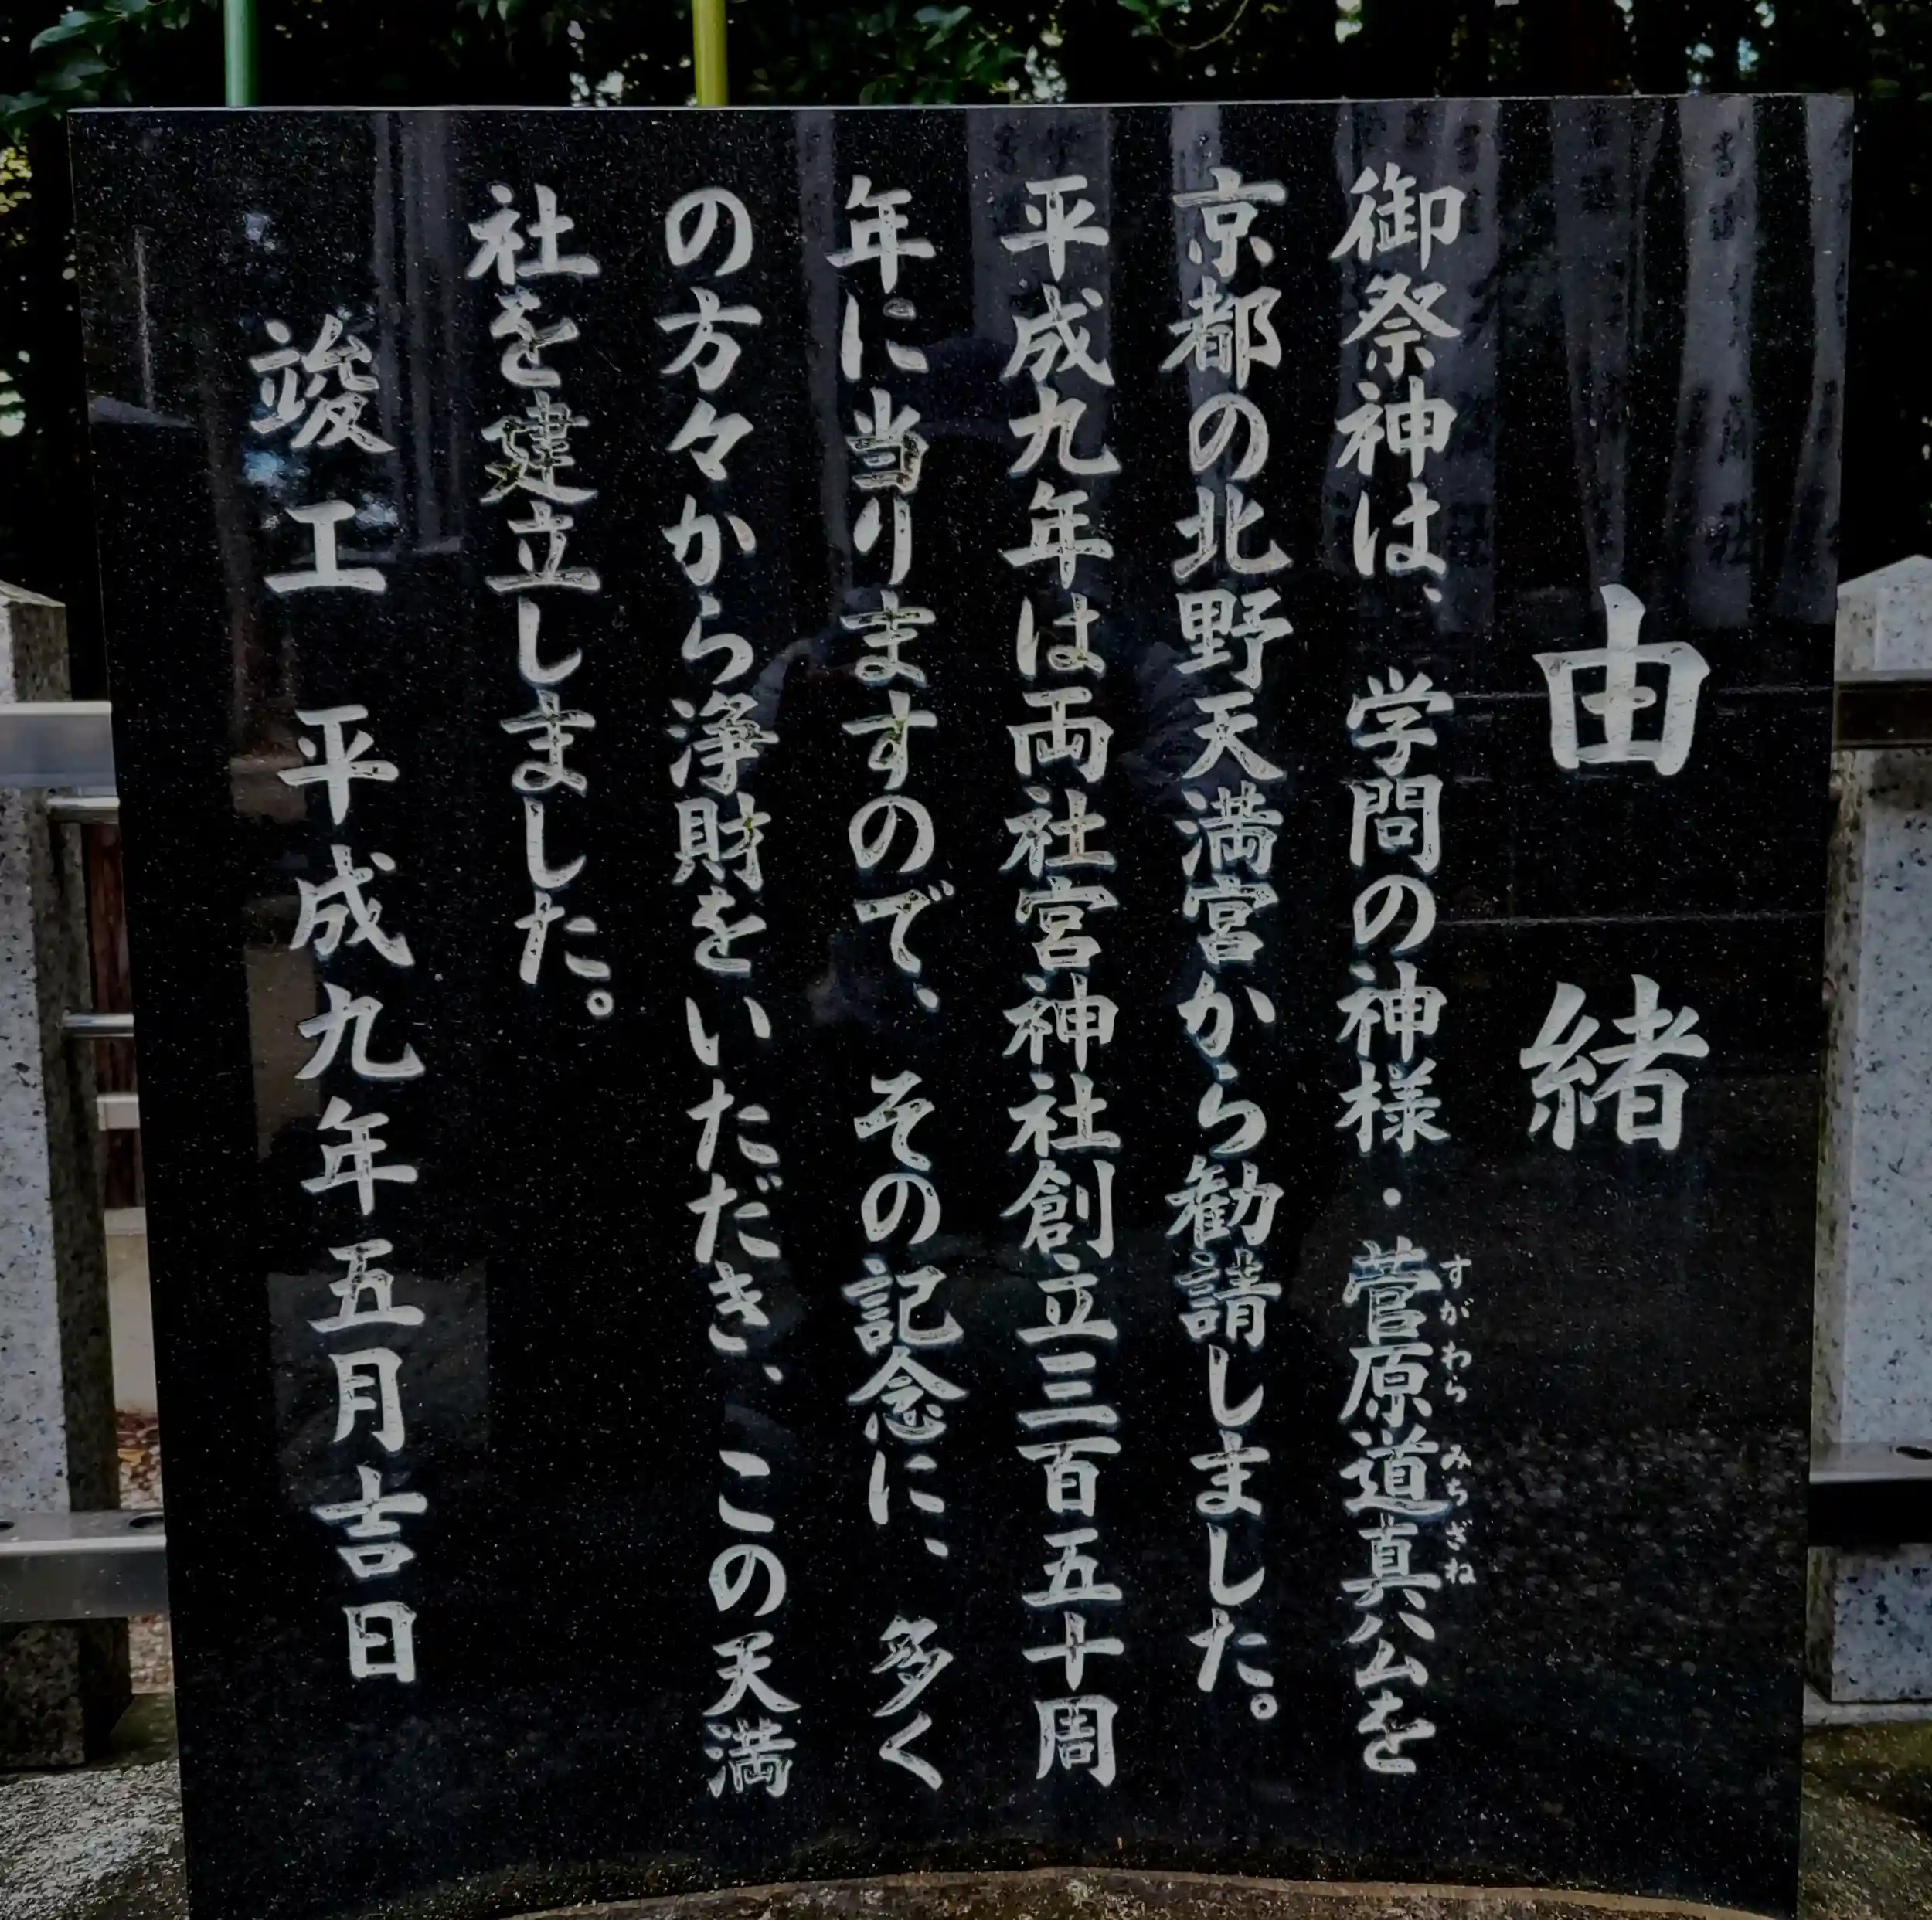 由緒
御祭神は、学問の神様・菅原道真公を
すがわらみちざね
京都の北野天満宮から勧請しました。
平成九年は両社宮神社創立三百五十周
年に当りますので、その記念に、多く
の方々から浄財をいただき、この天満
社を建立しました。
竣工 平成九年五月吉日